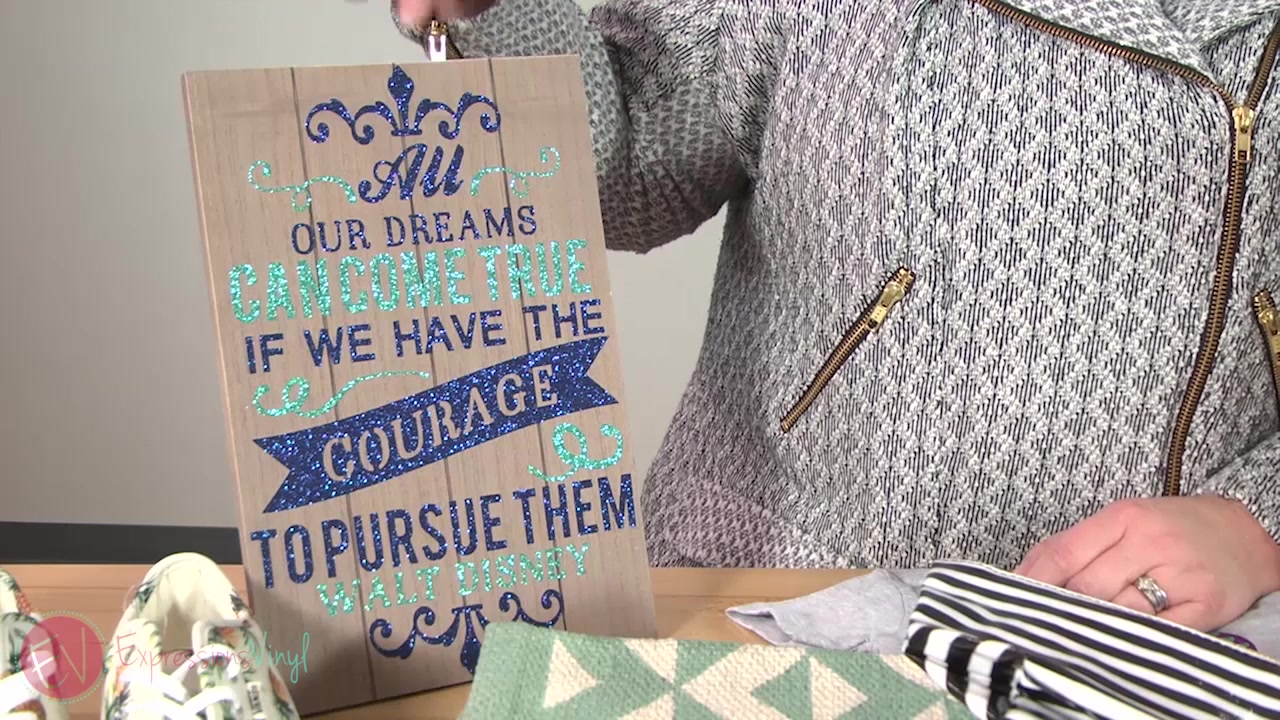 All
OUR DREAMS
CAN COME TRUE
IF WE HAVE THE
COURAGE
TO PURSUE THEM
WALT DISNEY
EV
ExpressionsVinyl